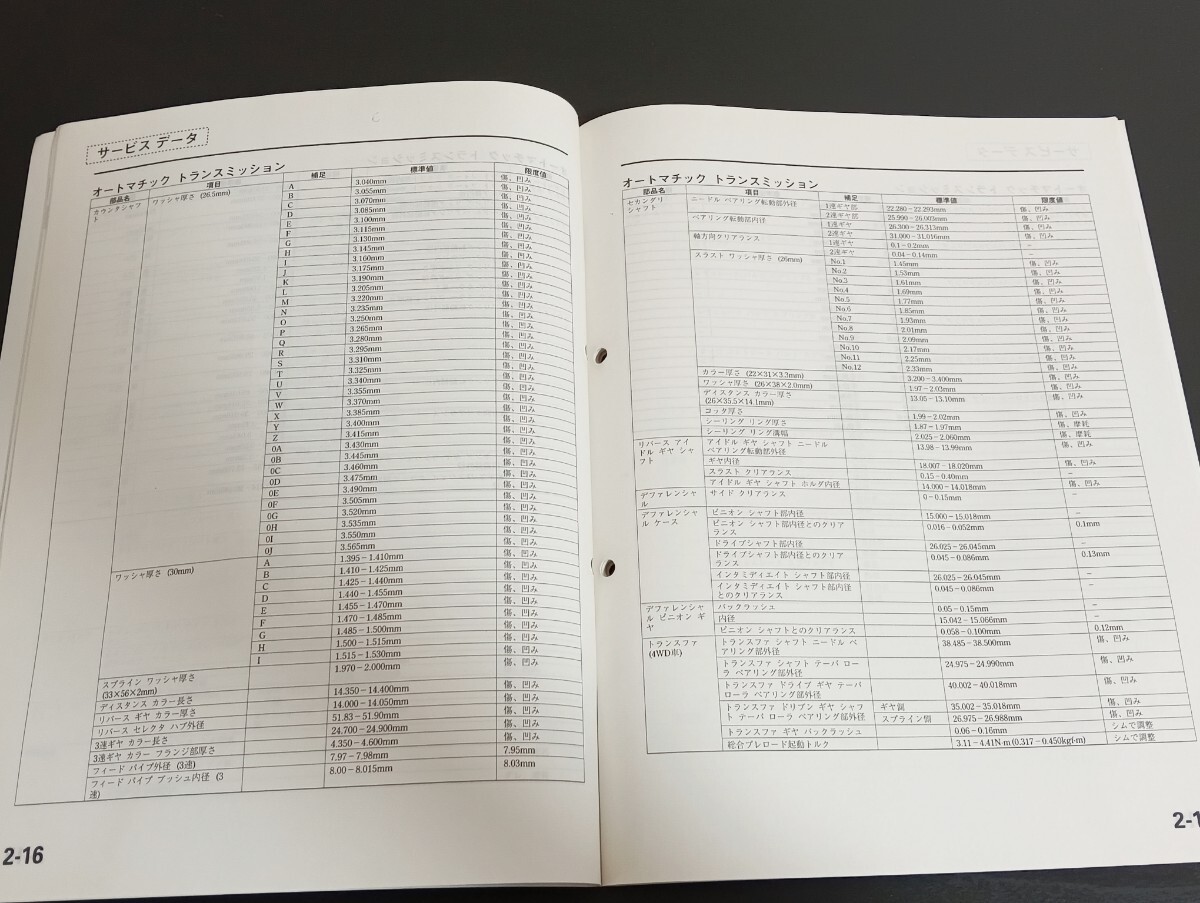 サービス データ
オートマチック トランスミッション
部品名 項目 補足 標準値 限度値
カウンタシャフト ワッシャ厚さ (26.5mm) A 3.040mm 傷、凹み
B 3.055mm 傷、凹み
C 3.070mm 傷、凹み
D 3.085mm 傷、凹み
E 3.100mm 傷、凹み
F 3.115mm 傷、凹み
G 3.130mm 傷、凹み
H 3.145mm 傷、凹み
I 3.160mm 傷、凹み
J 3.175mm 傷、凹み
K 3.190mm 傷、凹み
L 3.205mm 傷、凹み
M 3.220mm 傷、凹み
N 3.235mm 傷、凹み
O 3.250mm 傷、凹み
P 3.265mm 傷、凹み
Q 3.280mm 傷、凹み
R 3.295mm 傷、凹み
S 3.310mm 傷、凹み
T 3.325mm 傷、凹み
U 3.340mm 傷、凹み
V 3.355mm 傷、凹み
W 3.370mm 傷、凹み
X 3.385mm 傷、凹み
Y 3.400mm 傷、凹み
Z 3.415mm 傷、凹み
0A 3.430mm 傷、凹み
0B 3.445mm 傷、凹み
0C 3.460mm 傷、凹み
0D 3.475mm 傷、凹み
0E 3.490mm 傷、凹み
0F 3.505mm 傷、凹み
0G 3.520mm 傷、凹み
0H 3.535mm 傷、凹み
0I 3.550mm 傷、凹み
0J 3.565mm 傷、凹み
ワッシャ厚さ (30mm) A 1.395-1.410mm 傷、凹み
B 1.410-1.425mm 傷、凹み
C 1.425-1.440mm 傷、凹み
D 1.440-1.455mm 傷、凹み
E 1.455-1.470mm 傷、凹み
F 1.470-1.485mm 傷、凹み
G 1.485-1.500mm 傷、凹み
H 1.500-1.515mm 傷、凹み
I 1.515-1.530mm 傷、凹み
スプライン ワッシャ厚さ 1.970-2.000mm 傷、凹み
(33×56×2mm)
ディスタンス カラー長さ 14.350-14.400mm 傷、凹み
リバース ギヤ カラー厚さ 14.000-14.050mm 傷、凹み
リバース セレクタ ハブ外径 51.83-51.90mm 傷、凹み
3速ギヤ カラー長さ 24.700-24.900mm 傷、凹み
3速ギヤ カラー フランジ部厚さ 4.350-4.600mm 傷、凹み
フィード パイプ外径 (3速) 7.97-7.98mm 7.95mm
フィード パイプ ブッシュ内径 (3速) 8.00-8.015mm 8.03mm
2-16
オートマチック トランスミッション
部品名 項目 補足 標準値 限度値
セカンダリ シャフト ニードル ベアリング転動部外径 1速ギヤ部 22.280-22.293mm 傷、凹み
2速ギヤ部 25.990-26.003mm 傷、凹み
ベアリング転動部内径 1速ギヤ 26.300-26.313mm 傷、凹み
2速ギヤ 31.000-31.016mm 傷、凹み
軸方向クリアランス 1速ギヤ 0.1-0.2mm -
2速ギヤ 0.04-0.14mm -
スラスト ワッシャ厚さ (26mm) No.1 1.45mm 傷、凹み
No.2 1.53mm 傷、凹み
No.3 1.61mm 傷、凹み
No.4 1.69mm 傷、凹み
No.5 1.77mm 傷、凹み
No.6 1.85mm 傷、凹み
No.7 1.93mm 傷、凹み
No.8 2.01mm 傷、凹み
No.9 2.09mm 傷、凹み
No.10 2.17mm 傷、凹み
No.11 2.25mm 傷、凹み
No.12 2.33mm 傷、凹み
カラー厚さ (22×31×3.3mm) 3.200-3.400mm 傷、凹み
ワッシャ厚さ (26×38×2.0mm) 1.97-2.03mm 傷、凹み
ディスタンス カラー厚さ 13.05-13.10mm 傷、凹み
(26×35.5×14.1mm)
コッタ厚さ 1.99-2.02mm 傷、凹み
シーリング リング厚さ 1.87-1.97mm 傷、摩耗
シーリング リング溝幅 2.025-2.060mm 傷、摩耗
リバース アイドル ギヤ シャフト アイドル ギヤ シャフト ニードル ベアリング転動部外径 13.98-13.99mm 傷、凹み
ギヤ内径 18.007-18.020mm 傷、凹み
スラスト クリアランス 0.15-0.40mm -
アイドル ギヤ シャフト ホルダ内径 14.000-14.018mm 傷、凹み
デファレンシャル サイド クリアランス 0-0.15mm -
デファレンシャル ケース ピニオン シャフト部内径 15.000-15.018mm -
ピニオン シャフト部内径とのクリアランス 0.016-0.052mm 0.1mm
ドライブシャフト部内径 26.025-26.045mm -
ドライブシャフト部内径とのクリアランス 0.045-0.086mm 0.13mm
インタミディエイト シャフト部内径 26.025-26.045mm -
インタミディエイト シャフト部内径とのクリアランス 0.045-0.086mm -
デファレンシャル ピニオン ギヤ バックラッシュ 0.05-0.15mm -
内径 15.042-15.066mm -
ピニオン シャフトとのクリアランス 0.058-0.100mm 0.12mm
トランスファ (4WD車) トランスファ シャフト ニードル ベアリング部外径 38.485-38.500mm 傷、凹み
トランスファ シャフト テーパ ローラ ベアリング部外径 24.975-24.990mm 傷、凹み
トランスファ ドライブ ギヤ テーパ ローラ ベアリング部外径 40.002-40.018mm 傷、凹み
トランスファ ドリブン ギヤ シャフト テーパ ローラ ベアリング部外径 ギヤ側 35.002-35.018mm 傷、凹み
スプライン側 26.975-26.988mm 傷、凹み
トランスファ ギヤ バックラッシュ 0.06-0.16mm シムで調整
総合プレロード起動トルク 3.11-4.41N·m (0.317-0.450kgf·m) シムで調整
2-1